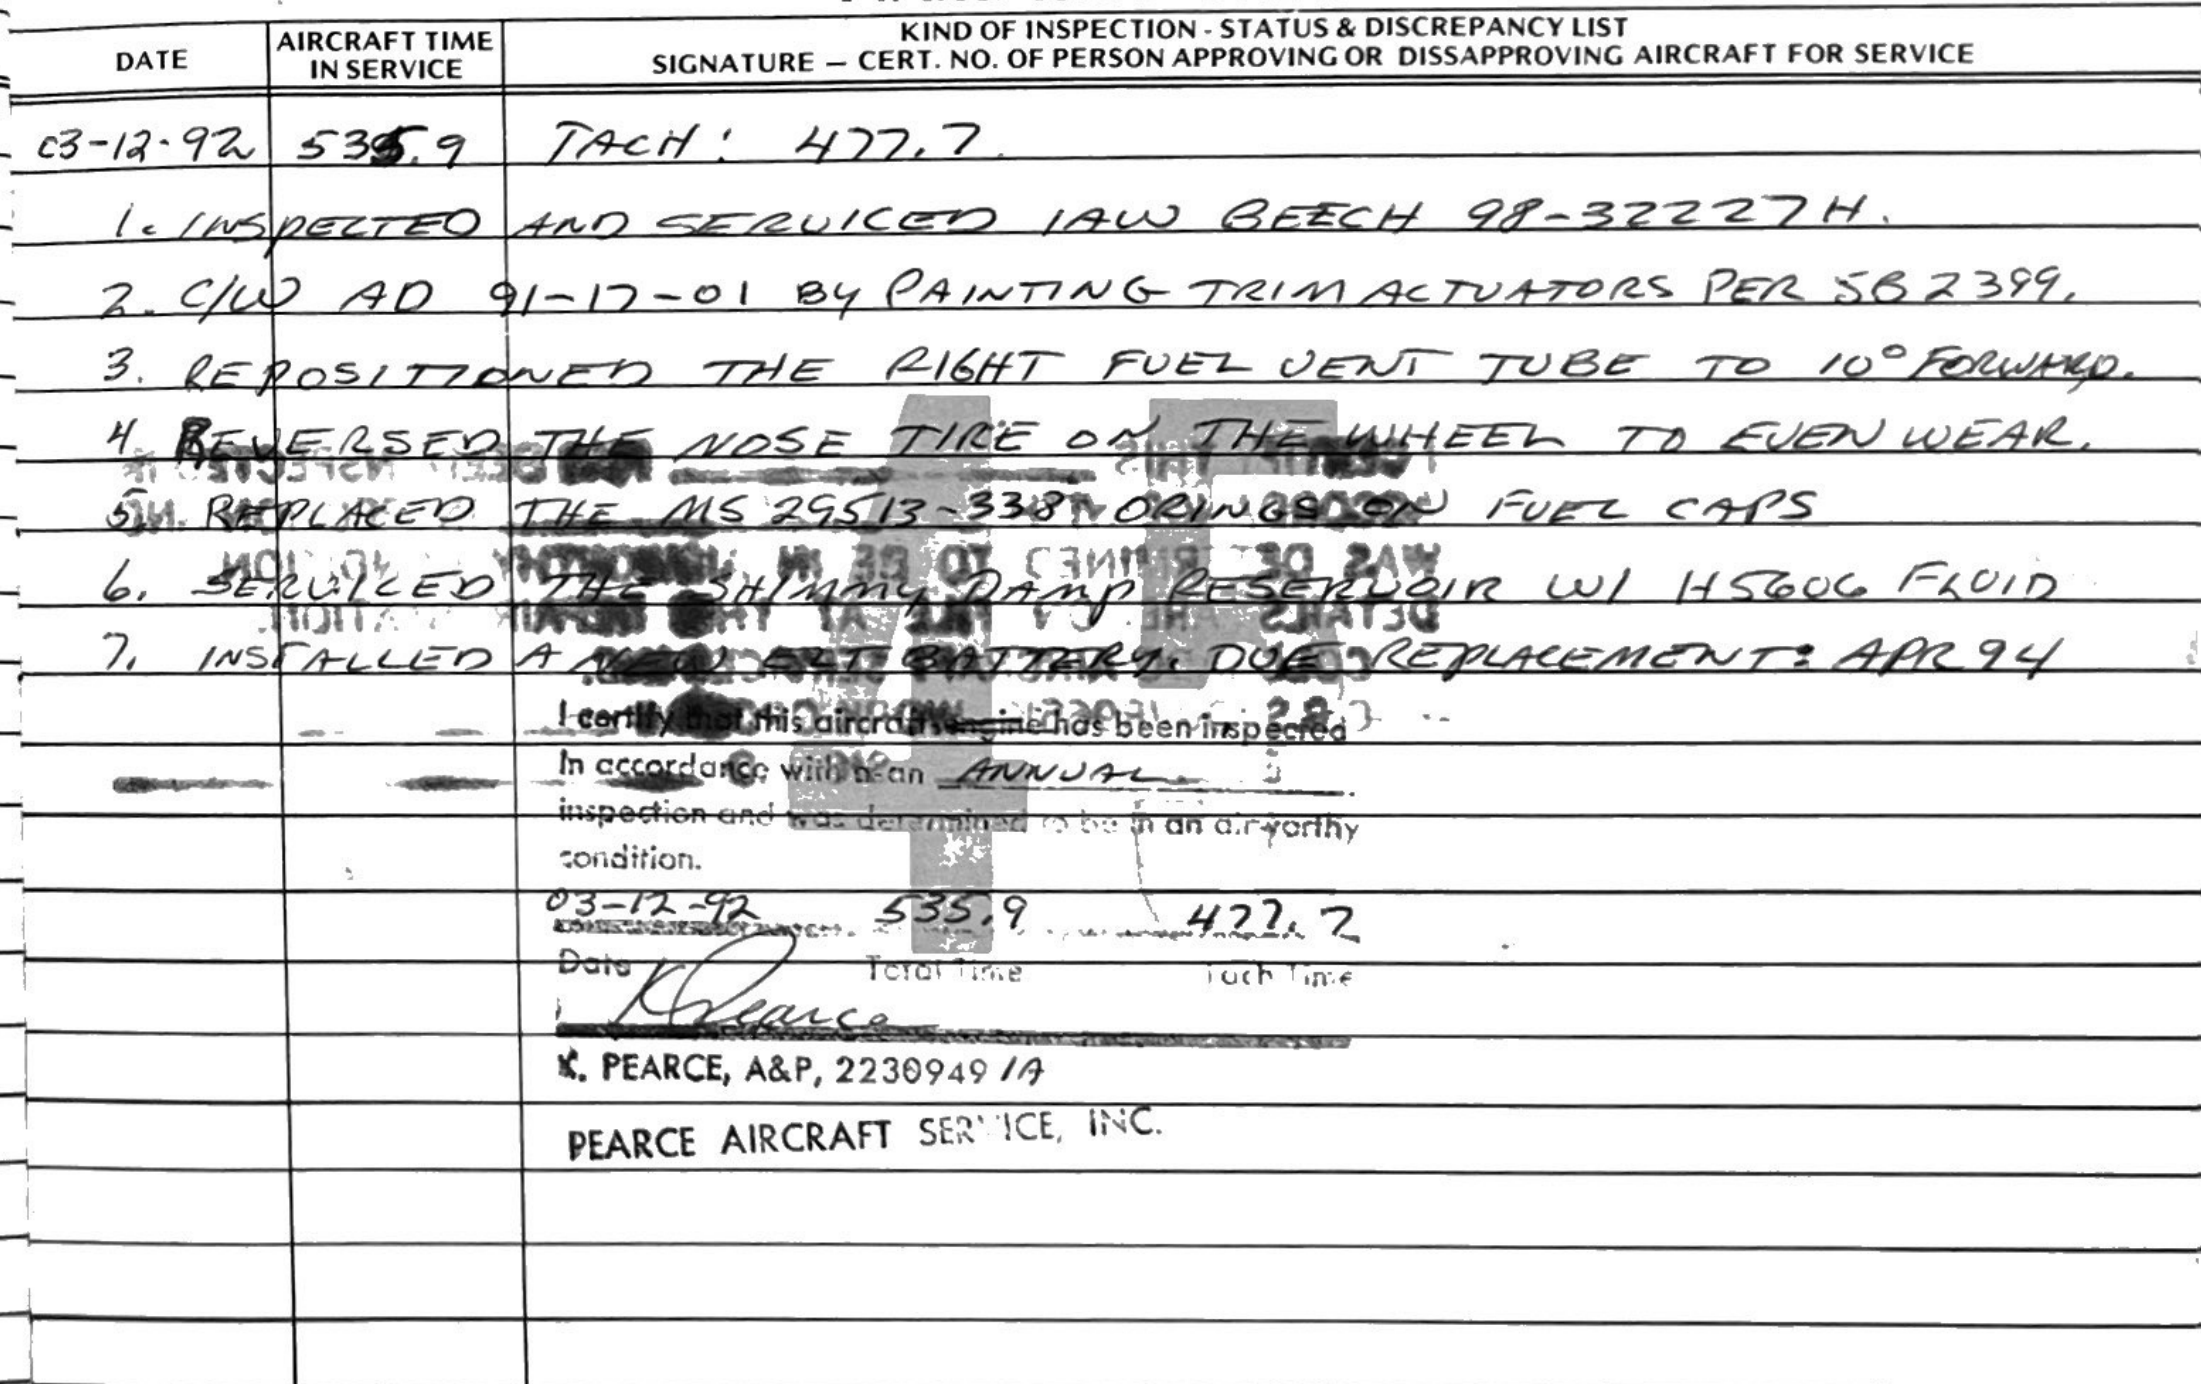 DATE
AIRCRAFT TIME IN SERVICE
KIND OF INSPECTION - STATUS & DISCREPANCY LIST
SIGNATURE — CERT. NO. OF PERSON APPROVING OR DISSAPPROVING AIRCRAFT FOR SERVICE
03-12-92 535.9 TACH: 477.7
1. INSPECTED AND SERVICED IAW BEECH 98-32227H.
2. C/W AD 91-17-01 BY PAINTING TRIM ACTUATORS PER SB 2399.
3. REPOSITIONED THE RIGHT FUEL VENT TUBE TO 10° FORWARD.
4. REVERSED THE NOSE TIRE ON THE WHEEL TO EVEN WEAR.
5. REPLACED THE MS 29513-338 ORINGS ON FUEL CAPS
6. SERVICED THE SHIMMY DAMP RESERVOIR W/ H5606 FLUID
7. INSTALLED A NEW ELT BATTERY. DUE REPLACEMENT: APR 94
I certify that this aircraft engine has been inspected
In accordance with a-an ANNUAL
inspection and was determined to be in an airworthy
condition.
03-12-92 535.9 477.7
Date Total Time Tach Time
K Pearce
K. PEARCE, A&P, 2230949 IA
PEARCE AIRCRAFT SERVICE, INC.